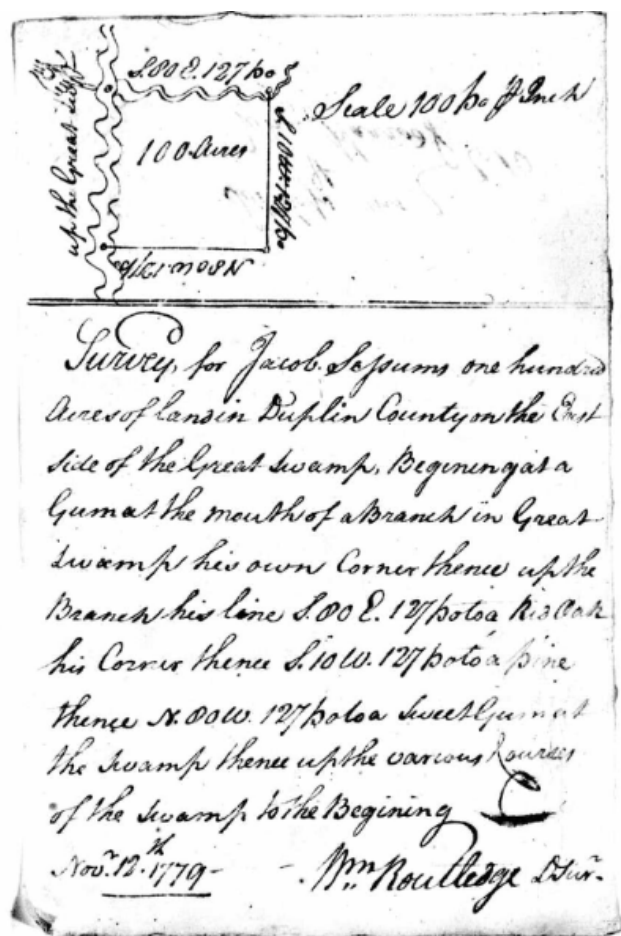 S. 80 E. 127 po
Scale 100 po ⅌ Inch
up the Great
100 Acres
S. 10 W. 127 po
N 80 W. 127 po
Survey, for Jacob. Seſsums one hundred
Acres of land in Duplin County on the East
side of the Great swamp, Begining at a
Gum at the mouth of a Branch in Great
swamp his own Corner thence up the
Branch his line S. 80 E. 127 po to a Red Oak
his Corner thence S. 10 W. 127 po to a pine
thence N. 80 W. 127 po to a Sweet Gum at
the swamp thence up the various Courses
of the swamp to the Begining
Novr. 12th. 1779 - - Wm Routledge D Surr.